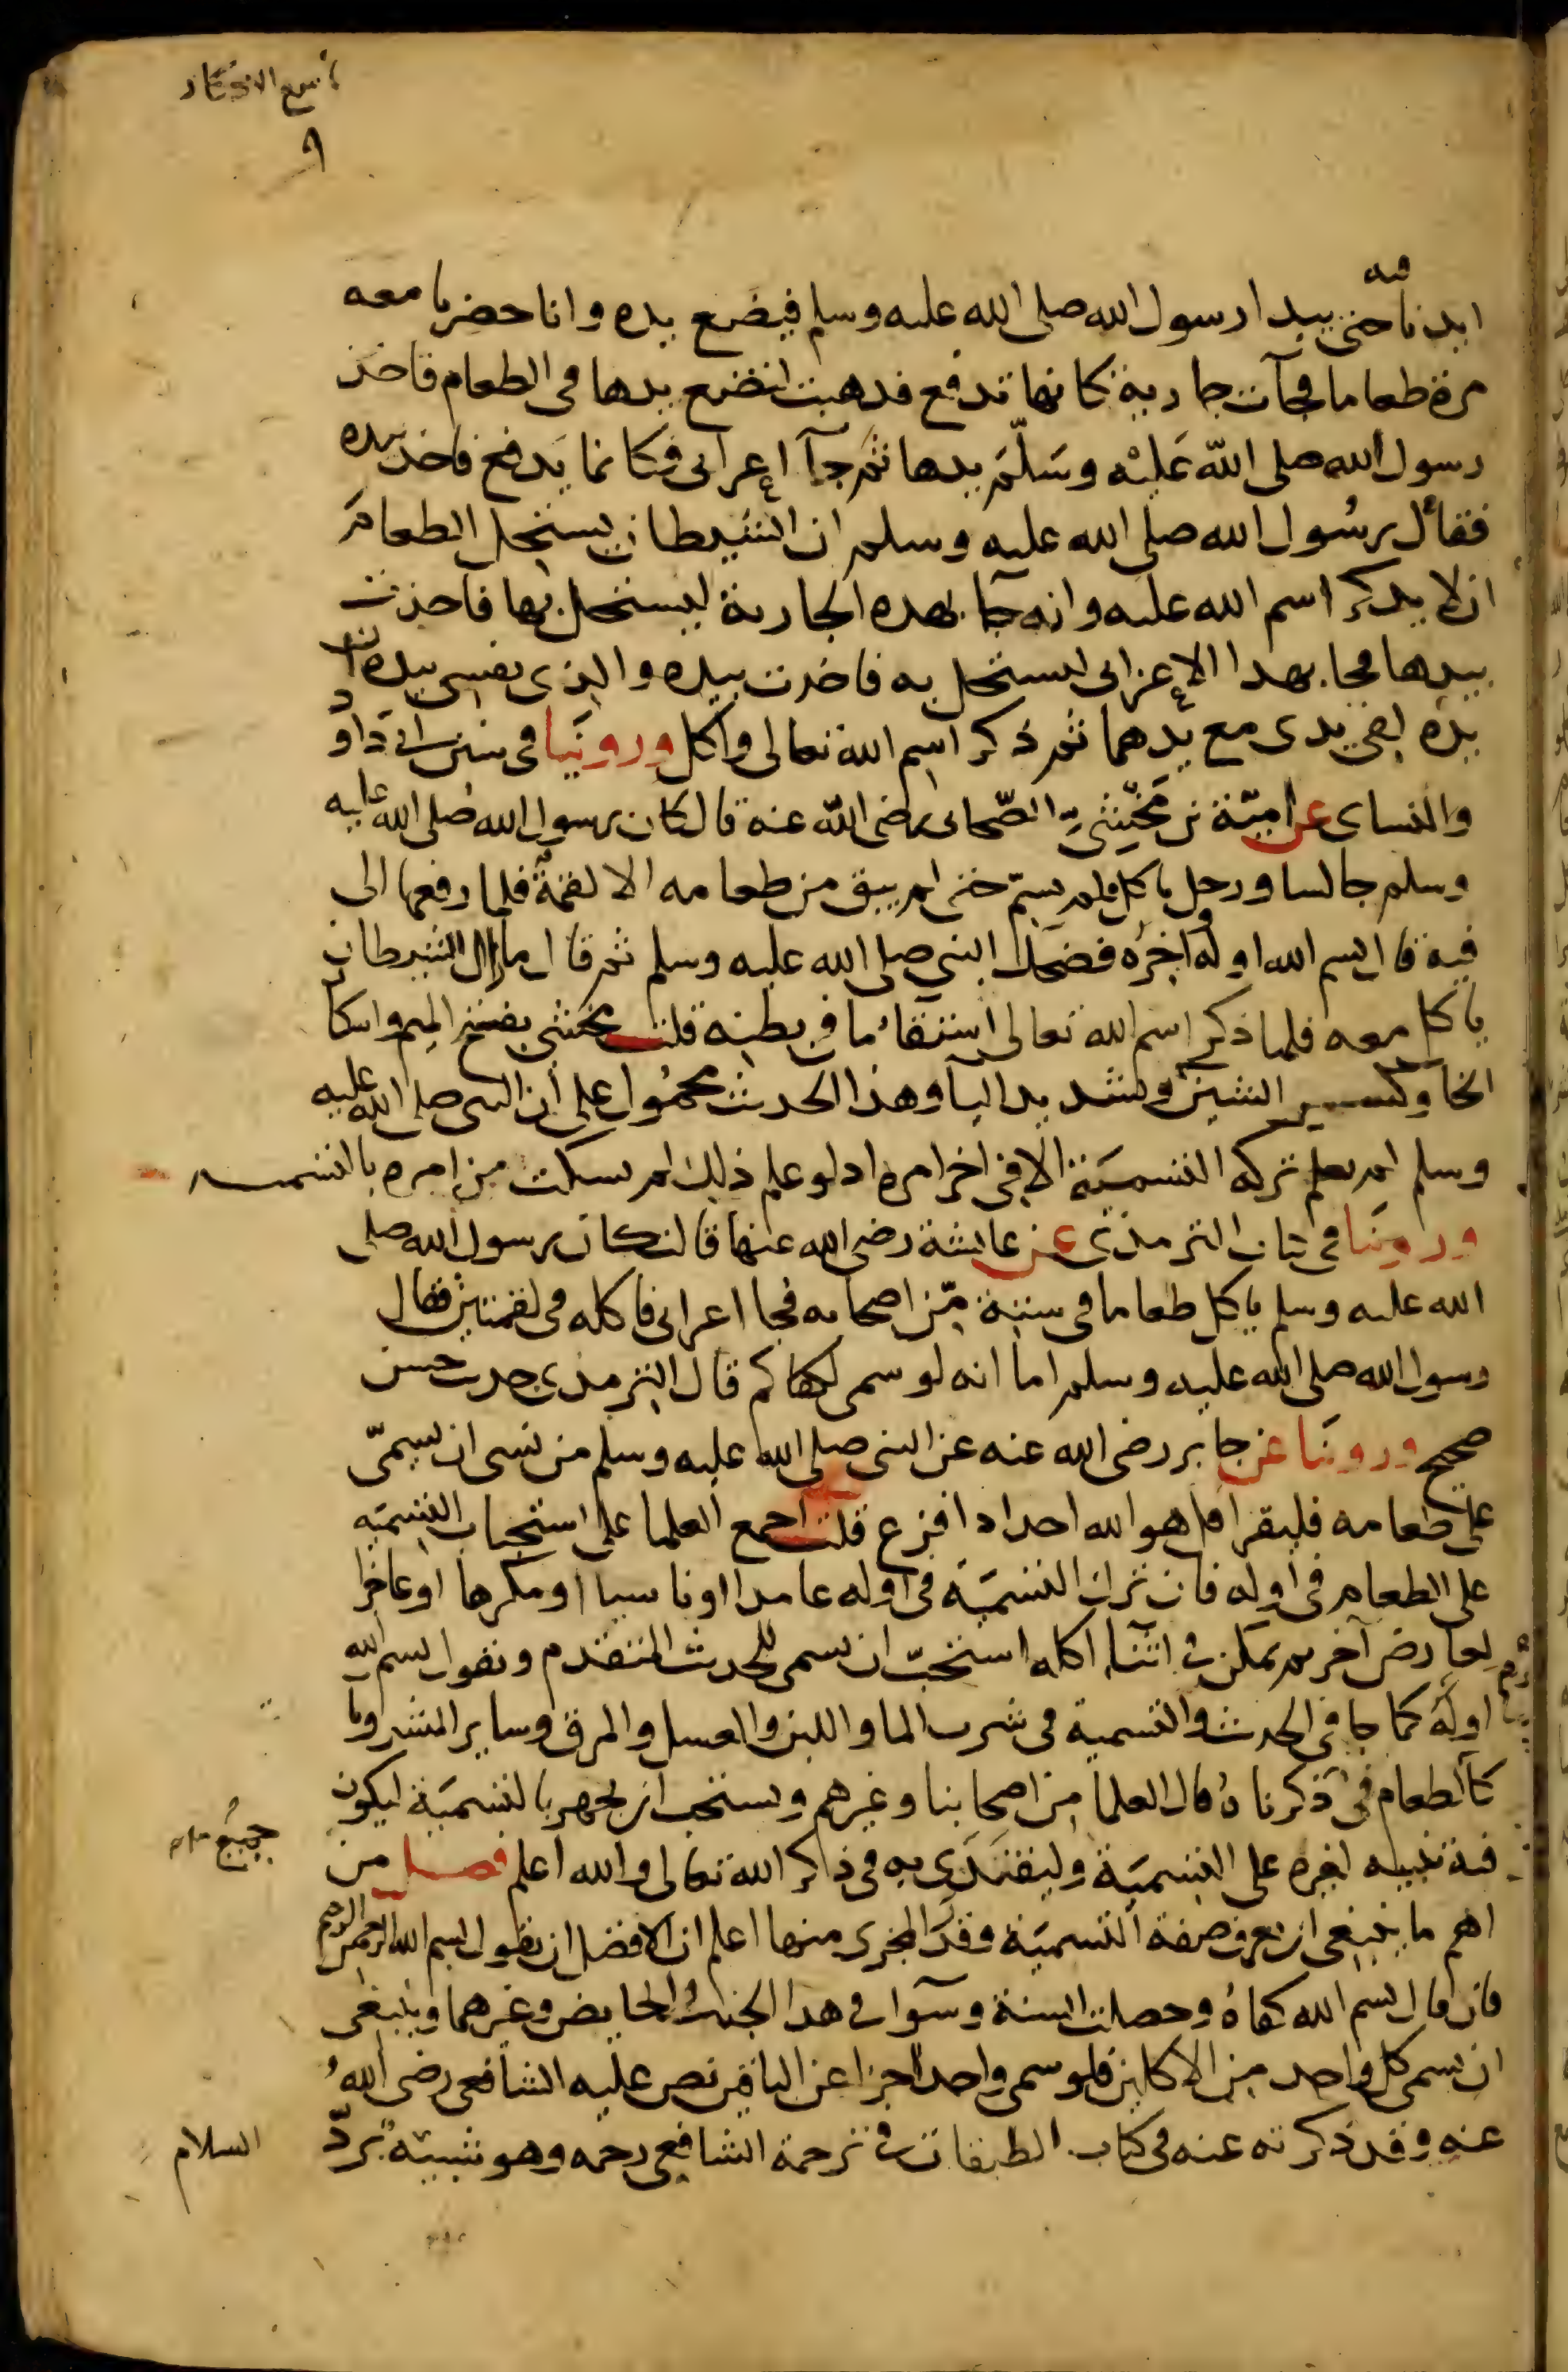 تاسع الاذكار
٩
فيه
ايدنا حتى يبدا رسول الله صلى الله عليه وسلم فيضع يده وانا حضرنا معه
مرة طعاما فجآت جارية كانها تدفع فذهبت لتضع يدها في الطعام فاخذ
رسول الله صلى الله عَليْه وسَلّمَ بيدها ثم جآ اعرابى فكانما يَدفع فاخذ بيده
فقال رسُول الله صلى الله عليه وسلم ان الشيطان يستحل الطعام
ان لا يذكر اسم الله عليه وانه جآ بهذه الجارية ليستحل بها فاخذت
بيدها فجا بهذا الاعرابى ليستحل به فاخذت بيده والذى نفسى بيده ان
يده لفى يدى مع يدهما ثم ذكر اسم الله تعالى واكل وروَيَنا فى سنن ابى دَاود
والنساى عن اميّة بن مَخْشِيّ الصّحابى رضى الله عنه قال كان رسول الله صلى الله عليه
وسلم جالسا ورجل ياكل فلم يسمّ حتى لم يبق من طعامه الا لقمةٌ فلما رفعها الى
فيه قال بسم الله اوله واخرَه فضحك النبي صلى الله عليه وسلم ثم قال مازال الشيطان
ياكل معه فلما ذكر اسم الله تعالى استقآ ما فى بطنه قلت مخشى بفتح الميم واسكان
الخآ وكسر الشين وتشديد اليآ وهذا الحديث محمُول على ان النبى صلى الله عليه
وسلم لم يعلم تركه التسميَة الا فى اخر امره اذ لو علم ذلك لم يسكت من امره بالتسميه
وروينا فى كتاب الترمذى عن عايشة رضى الله عنها قالت كان رسول الله صلى
الله عليه وسلم ياكل طعاما فى ستة مّن اصحابه فجا اعرابى فاكله فى لقمتين فقال
رسول الله صلى الله عليه وسلم اما انه لو سمى لكفاكم قال الترمذى حديث حسن
صحيح وروينَا عن جابر رضى الله عنه عن النبى صلى الله عليه وسلم من نسى ان يسمّى
على طعامه فليقرا قل هو الله احد اذا فرغ قلت اجمع العلما على استحباب التسميَه
على الطعام فى اوله فان ترك التسميَة فى اوله عامدا او ناسيا او مكرها او عاجزا
لعارض آخر ثم تمكن فى اثنآ اكله استحبّ ان يسمى للحديث المتقدم ويقول بسم الله
اوله كما جا فى الحديث والتسمية فى شرب الما واللبن والعسل والمرق وساير المشروبا
كالطعام فى ذكرناه قال العلما من اصحابنا وغيرهم ويستحب ان يجهر بالتسميَة ليكون
فيه تنبيه لغيره على التسميَة وليقتدَى به فى ذلك والله تعالى والله اعلم فصل من
اهم ما ينبغى ان يعرف صفة التسميَة وقدَر المجزى منها اعلم ان الافضل ان يقول بسم الله الرحمن الرحيم
فان قال بسم الله كفاهُ وحصلت السنة وسوآ فى هذا الجنب والحايض وغيرهما وينبغى
ان يسمى كل واحد من الاكلين فلو سمى واحد اجزا عن الباقين نص عليه الشافعى رضى اللهُ
عنه وقد ذكرته عنه فى كتاب الطبقات فى ترجمة الشافعي رحمه وهو شبيهٌ بردّ
جميع
السلام